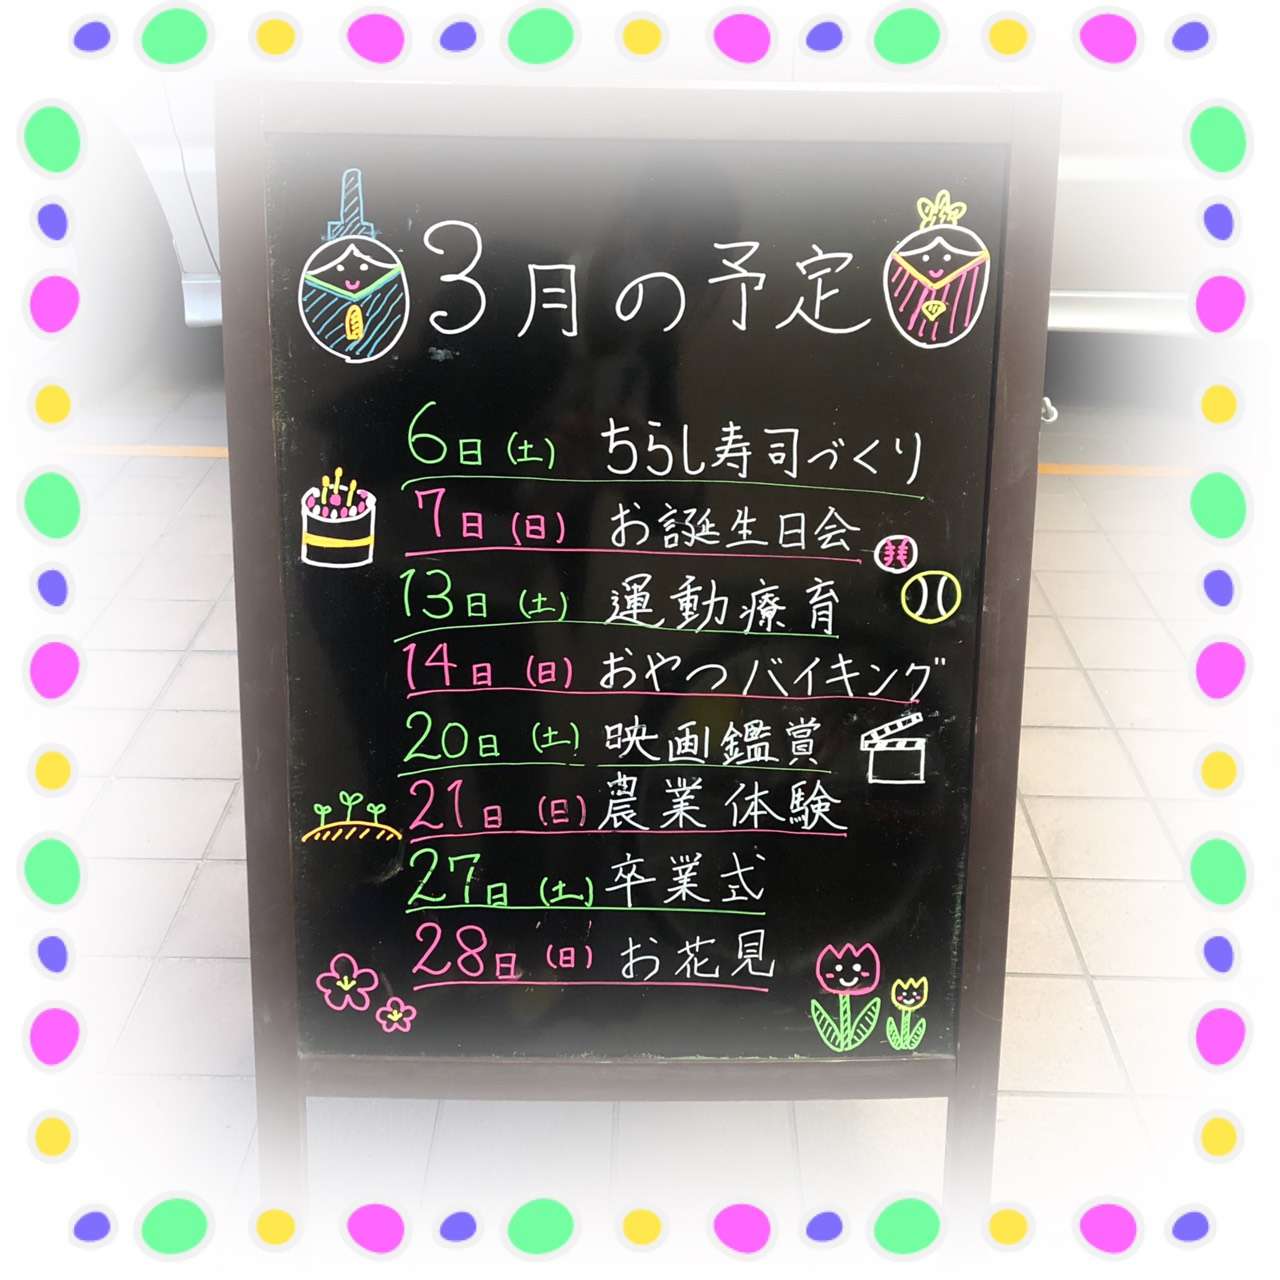 3月の予定
6日(土) ちらし寿司づくり
7日(日) お誕生日会
13日(土) 運動療育
14日(日) おやつバイキング
20日(土) 映画鑑賞
21日(日) 農業体験
27日(土) 卒業式
28日(日) お花見